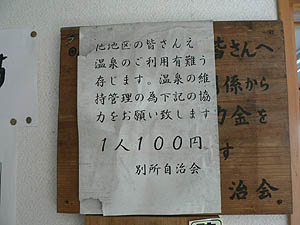 他地区の皆さんえ
温泉のご利用有難う
存じます。温泉の維
持管理の為下記の協
力をお願い致します
1人100円
別所自治会
皆さんへ
係から
力金を
す
治会